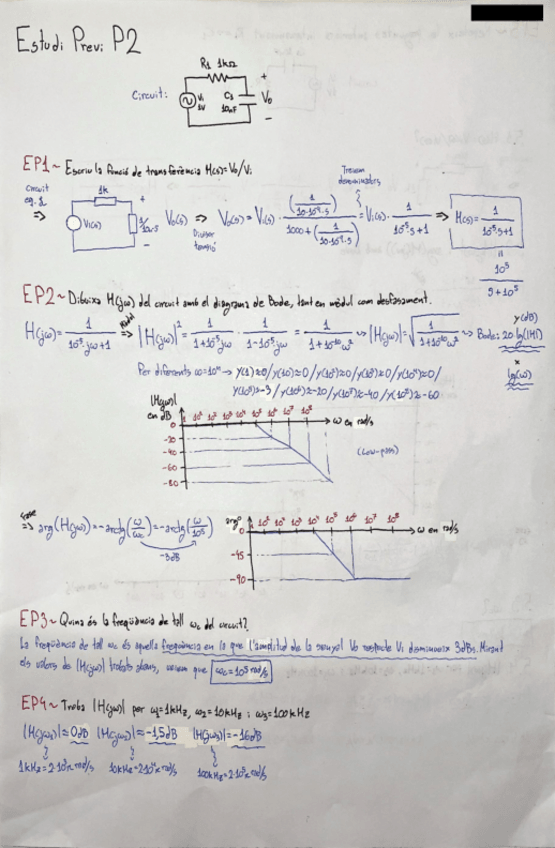 Estudi Previ P2
Circuit:
R₁ 1kΩ
Vi
1V
C₁
10nF
+
Vo
-
EP1~ Escriu la funció de transferència H(s)=Vo/Vi
Circuit
eq. 1
⇒
1k
Vi(s)
+
Vo(s)
-
⇒
Divisor
tensió
Vo(s) = Vi(s) · (1/(10·10⁻⁹·s)) / (1000 + (1/(10·10⁻⁹·s))) = Vi(s) · 1/(10⁻⁵s+1) ⇒ H(s) = 1/(10⁻⁵s+1)
Treiem
denominadors
=
10⁵/(s+10⁵)
EP2~ Dibuixa H(jω) del circuit amb el diagrama de Bode, tant en mòdul com desfasament.
H(jω) = 1/(10⁻⁵jω+1) ⇒ |H(jω)|² = 1/(1+10⁻⁵jω) · 1/(1-10⁻⁵jω) = 1/(1+10⁻¹⁰ω²) ↝ |H(jω)| = √(1/(1+10⁻¹⁰ω²)) ↝ Bode: 20·lg(|H|)
Mòdul
y(dB)
x
lg(ω)
Per diferents ω=10ⁿ → y(1)≈0/y(10)≈0/y(10²)≈0/y(10³)≈0/y(10⁴)≈0/
y(10⁵)≈-3/y(10⁶)≈-20/y(10⁷)≈-40/y(10⁸)≈-60
|H(jω)|
en dB
ω en rad/s
0
-20
-40
-60
-80
(Low-pass)
Fase
⇒ arg(H(jω)) = -arctg(ω/ωc) = -arctg(ω/10⁵)
-3dB
arg°
0
1 10¹ 10² 10³ 10⁴ 10⁵ 10⁶ 10⁷ 10⁸
ω en rad/s
-45
-90
EP3~ Quina és la freqüència de tall ωc del circuit?
La freqüència de tall ωc és aquella freqüència en la que l'amplitud de la senyal Vo respecte Vi disminueix 3dBs. Mirant
els valors de |H(jω)| trobats abans, veiem que ωc=10⁵ rad/s
EP4~ Troba |H(jω)| per ω₁=1kHz, ω₂=10kHz i ω₃=100kHz
|H(jω₁)|≈0dB |H(jω₂)|=-1,5dB |H(jω₃)|=-16dB
1kHz=2·10³π rad/s 10kHz=2·10⁴π rad/s 100kHz=2·10⁵π rad/s